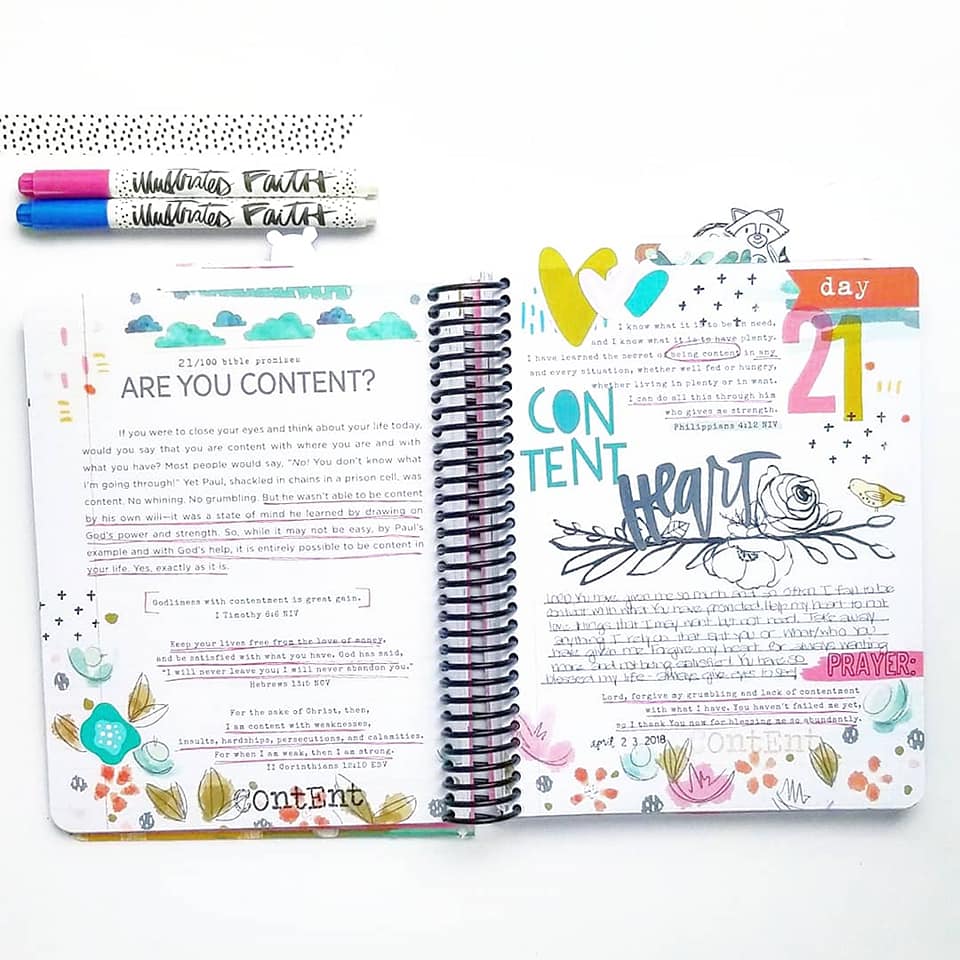 illustrated FAITH
illustrated FAITH
21/100 bible promises
ARE YOU CONTENT?
If you were to close your eyes and think about your life today,
would you say that you are content with where you are and with
what you have? Most people would say, "No! You don't know what
I'm going through!" Yet Paul, shackled in chains in a prison cell, was
content. No whining. No grumbling. But he wasn't able to be content
by his own will—it was a state of mind he learned by drawing on
God's power and strength. So, while it may not be easy, by Paul's
example and with God's help, it is entirely possible to be content in
your life. Yes, exactly as it is.
Godliness with contentment is great gain.
I Timothy 6:6 NIV
Keep your lives free from the love of money,
and be satisfied with what you have. God has said,
"I will never leave you; I will never abandon you."
Hebrews 13:5 NCV
For the sake of Christ, then,
I am content with weaknesses,
insults, hardships, persecutions, and calamities.
For when I am weak, then I am strong.
II Corinthians 12:10 ESV
contEnt
day
21
I know what it is to be in need,
and I know what it is to have plenty.
I have learned the secret of being content in any
and every situation, whether well fed or hungry,
whether living in plenty or in want.
I can do all this through him
who gives me strength.
Philippians 4:12 NIV
CON
TENT
Heart
Lord You have given me so much and so often I fail to be
content with what You have provided. Help my heart to not
love things that I may want but not need. Take away
anything I rely on that isn't you or what/who You
have given me. Forgive my heart for always wanting
more and not being satisfied. You have so
blessed my life - always give eyes to see!
PRAYER:
Lord, forgive my grumbling and lack of contentment
with what I have. You haven't failed me yet,
so I thank You now for blessing me so abundantly.
april 23 2018
contEnt